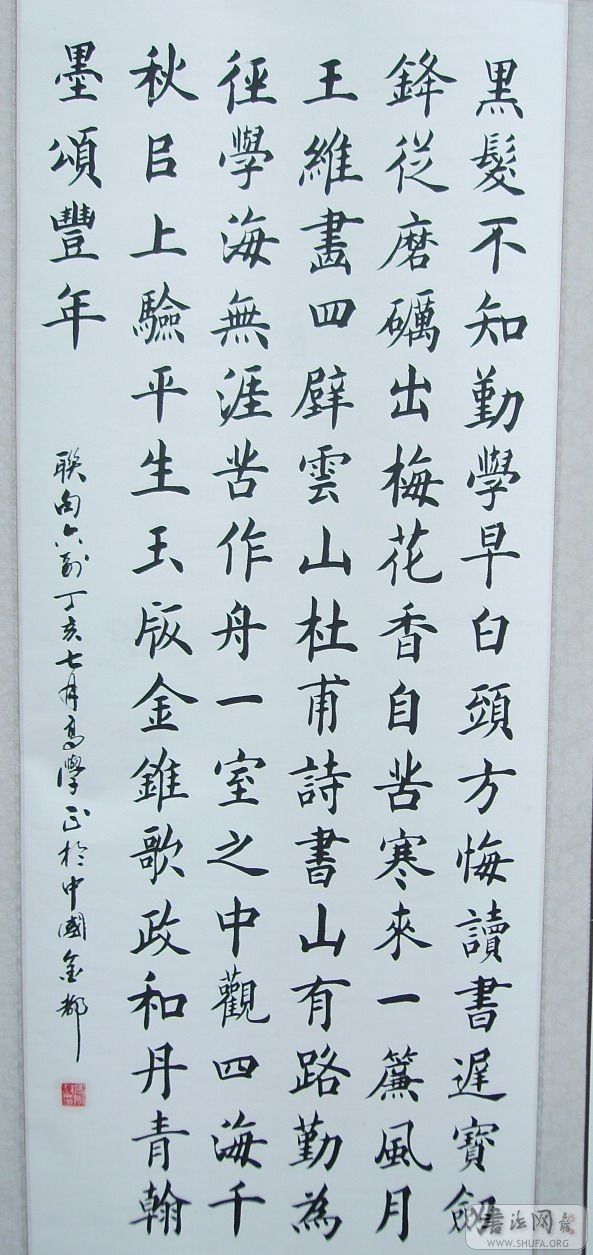 黒髮不知勤學早白頭方悔讀書遲寶劔
鋒從磨礪出梅花香自苦寒來一簾風月
王維畫四壁雲山杜甫詩書山有路勤為
徑學海無涯苦作舟一室之中觀四海千
秋㠯上驗平生玉版金錐歌政和丹青翰
墨頌豐年
聯句六則丁亥七月高學正於中國金都
書法网
WWW.SHUFA.ORG